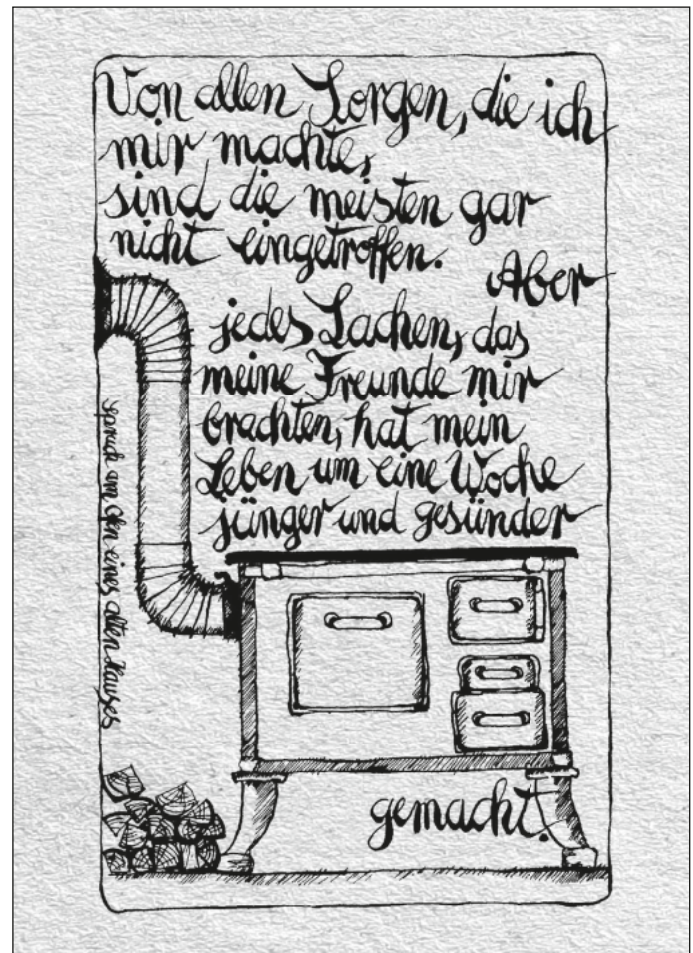 Von allen Sorgen, die ich
mir machte,
sind die meisten gar
nicht eingetroffen.
Aber
jedes Lachen, das
meine Freunde mir
brachten, hat mein
Leben um eine Woche
jünger und gesünder
gemacht.
spruch am Ofen eines alten Hauses